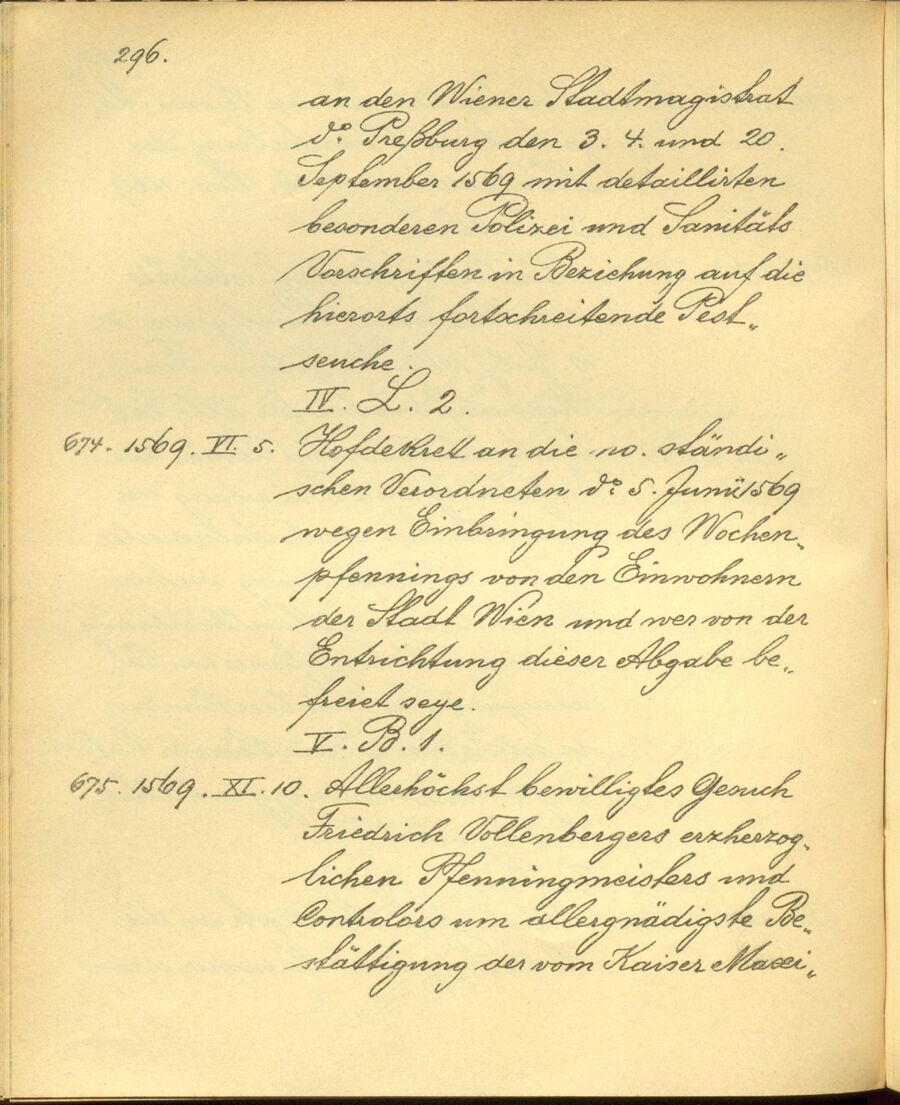 296.
an den Wiener Stadtmagistrat
do. Preßburg den 3. 4. und 20.
September 1569 mit detaillirten
besonderen Polizei und Sanitäts
Vorschriften in Beziehung auf die
hierorts fortschreitende Pest„
seuche.
IV. L. 2.
674. 1569. VI. 5. Hofdekrett an die no. ständi„
schen Verordneten do. 5. Junii 1569
wegen Einbringung des Wochen„
pfennings von den Einwohnern
der Stadt Wien und wer von der
Entrichtung dieser Abgabe be„
freiet seye.
V. B. 1.
675. 1569. XI. 10. Allerhöchst bewilligtes Gesuch
Friedrich Vollenbergers erzherzog„
lichen Pfenningmeisters und
Controlors um allergnädigste Be„
stättigung der vom Kaiser Maxi„